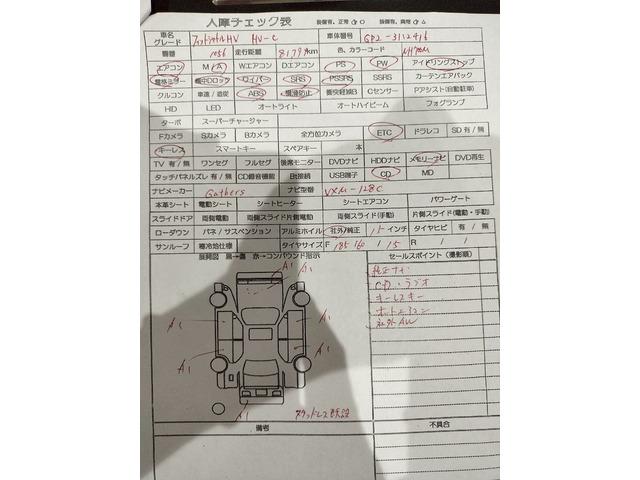 入庫チェック表 設備有、正常 / ○ 設備有、異常 / △
車名 グレード フィットシャトルHV HV-C 車体番号 GP2-3112416
機番 1056 走行距離 81791km 色、カラーコード NH700M
エアコン M / A Wエアコン Dエアコン PS PW アイドリングストップ
電格ミラー 集中ロック Wエバー SRS PSSRS SSRS カーテンエアバック
クルコン 車速 / 追従 ABS 横滑防止 衝突軽減B Cセンサー Pアシスト(自動駐車)
HID LED オートライト オートハイビーム フォグランプ
ターボ スーパーチャージャー
Fカメラ Sカメラ Bカメラ 全方位カメラ ETC ドラレコ SD 有 / 無
キーレス スマートキー スペアキー 本
TV 有 / 無 ワンセグ フルセグ 後席モニター DVDナビ HDDナビ メモリーナビ DVD再生
タッチパネルズレ 有 / 無 CD録音機能 Bt接続 USB端子 CD MD
ナビメーカー Gathers ナビ型番 VXM-128C
本革シート 電動シート シートヒーター シートエアコン パワーゲート
スライドドア 両側電動 両側スライド片側電動 両側スライド(手動) 片側スライド(電動・手動)
ローダウン バネ / サスペンション アルミホイル 社外/純正 15 インチ タイヤヒビ 有 / 無
サンルーフ 寒冷地仕様 タイヤサイズ F 185 / 60 / 15 R / /
展開図 黒→傷 赤→コンパウンド指示 セールスポイント(撮影順)
純正ナビ
CD・ラジオ
キーレスキー
オートエアコン
社外AW
A1
A1
A1
A1
A1
A1
A1
スタッドレス
備考 不具合